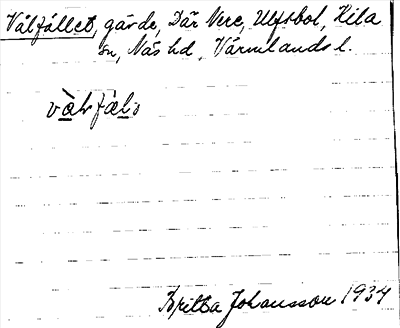 Välfället, gärde, Där Nere, Ulfsbol, Kila
sn, Näs hd, Värmlands l.
Britta Johansson 1934